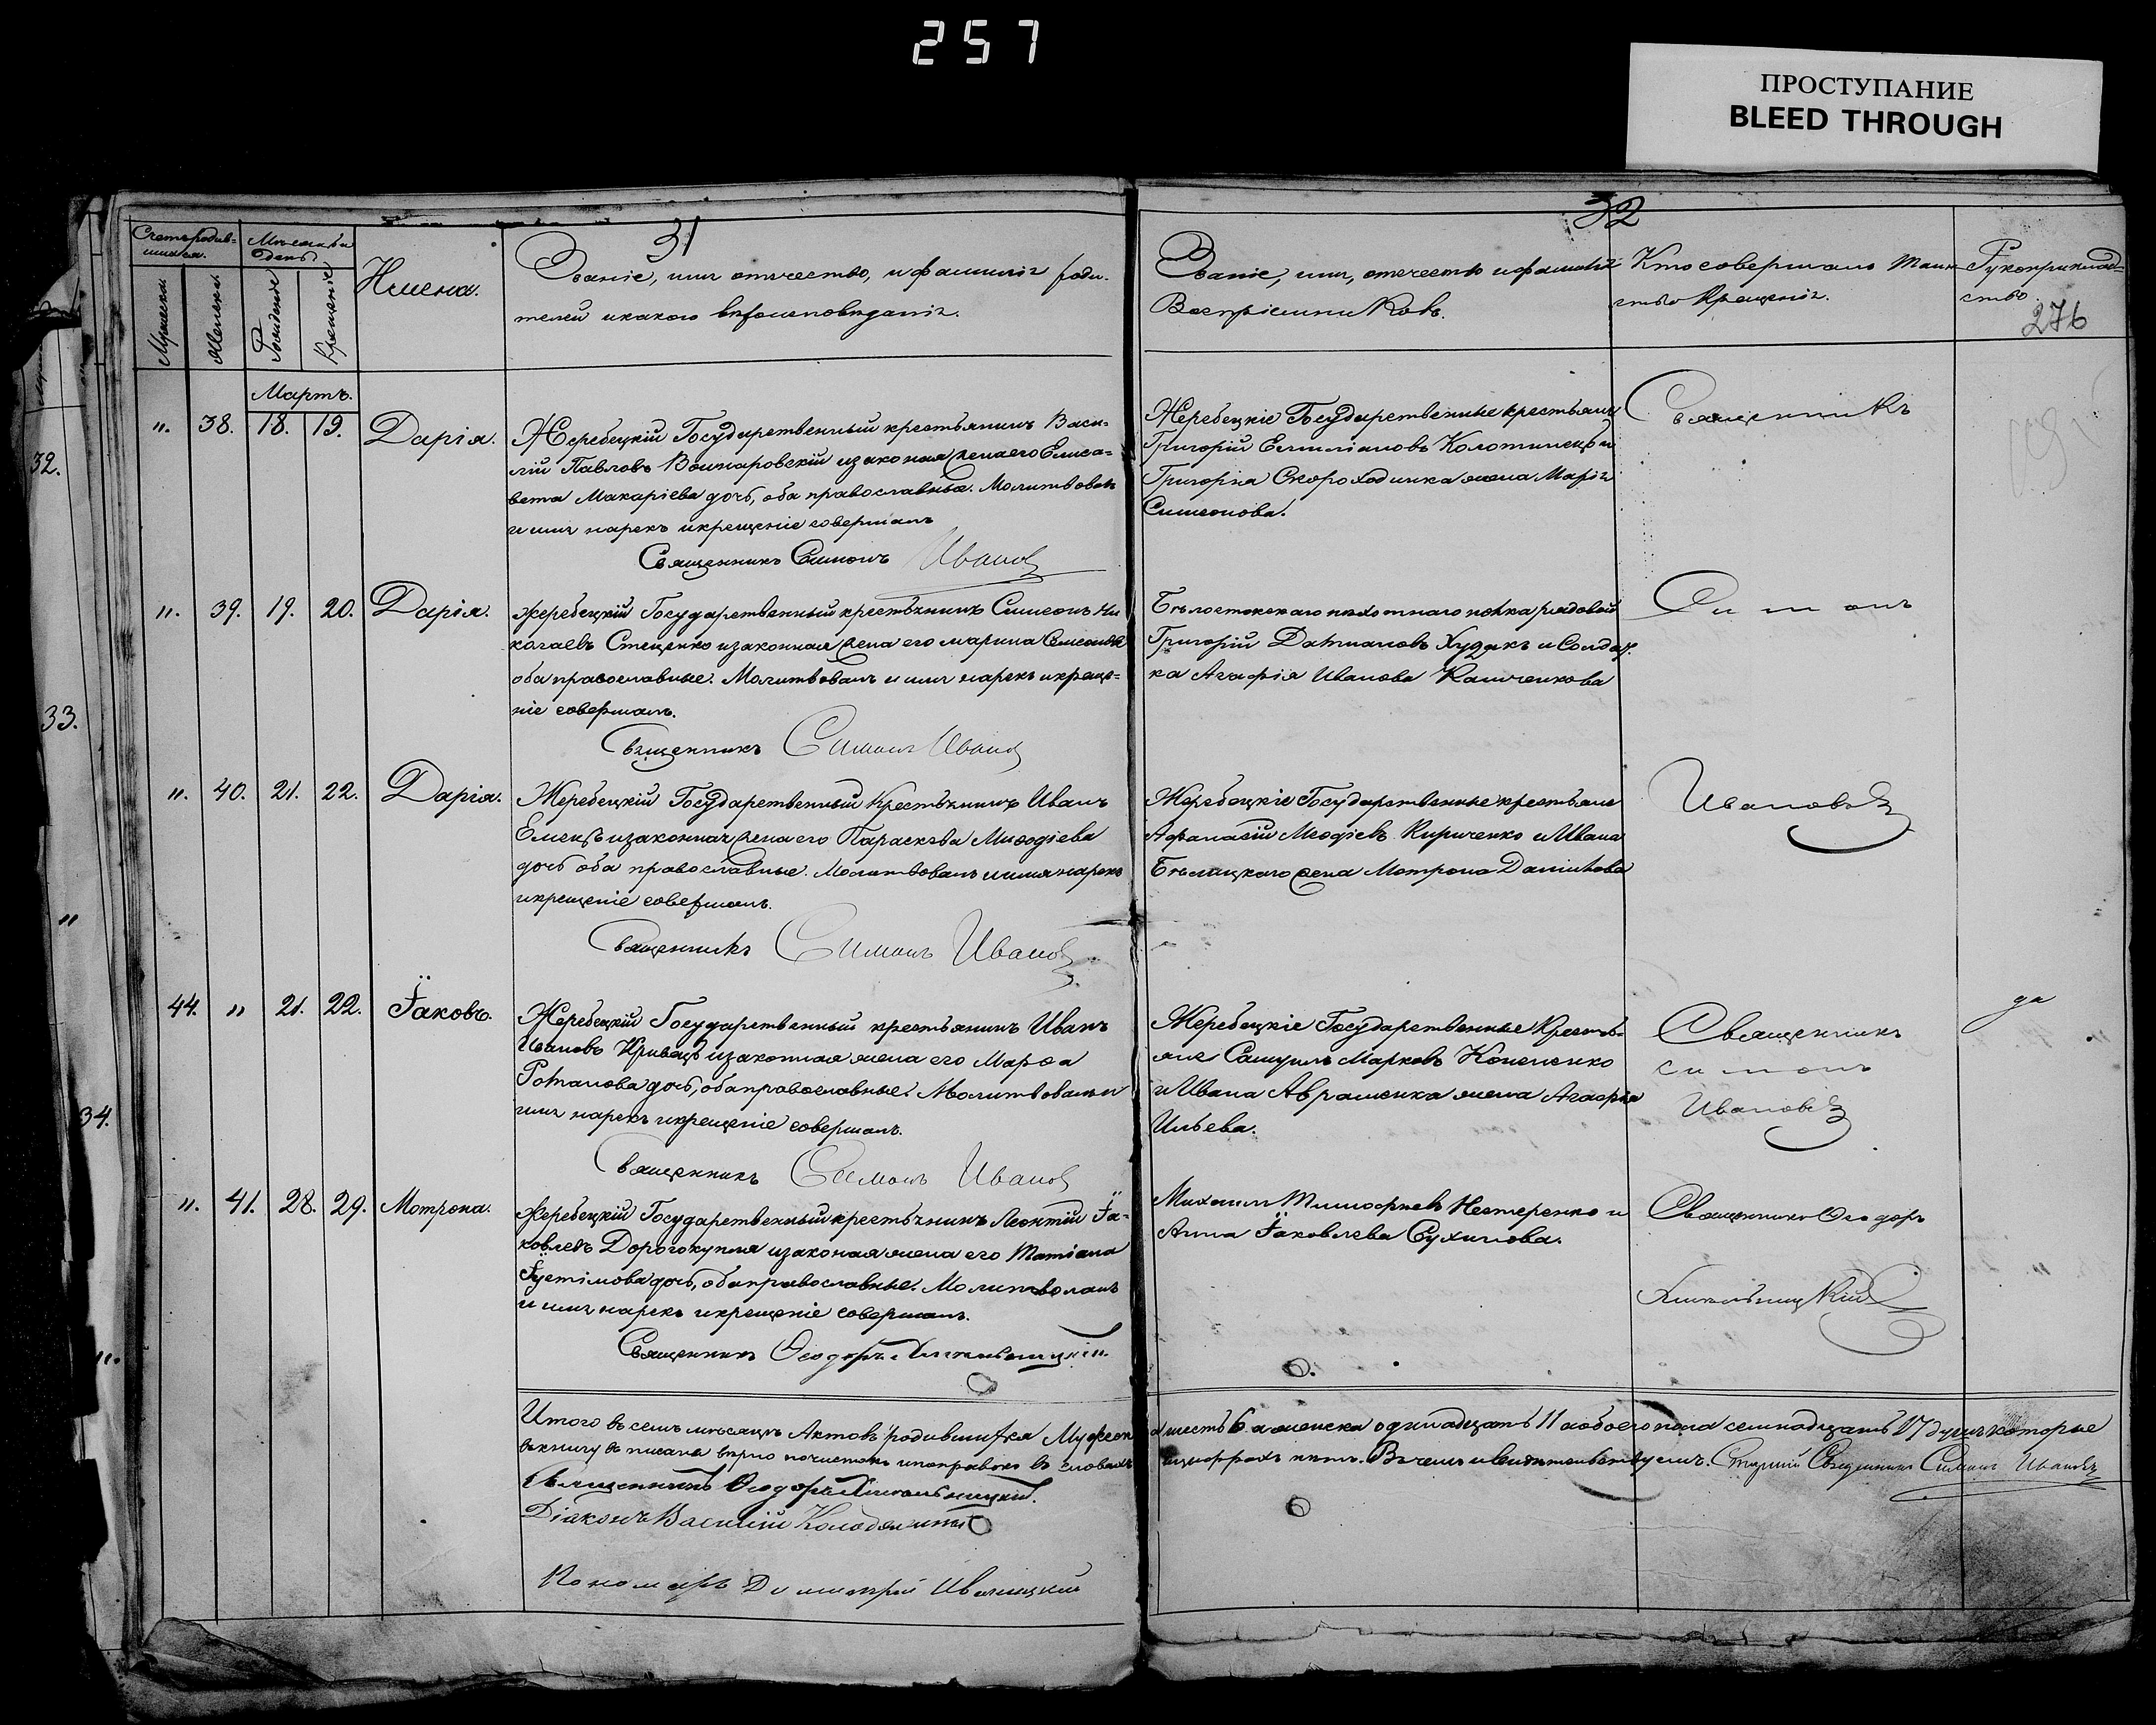 257
ПРОСТУПАНИЕ
BLEED THROUGH
31
32
276
Счетъ родив-
шихся.
Мѣсяцъ и
день.
Мужеска.
Женска.
Рожденіе
Крещеніе
Имена.
Званіе, имя отчество, и фамилія роди-
телей и какого вѣроисповѣданія.
Званіе, имя, отечество и фамилія
Воспріемниковъ.
Кто совершалъ Таин-
ство Крещенія.
Рукоприклад-
ство
Мартъ.
". 38. 18. 19. Дарія.
Жеребецкій Государственный крестьянинъ Васи-
лій Павловъ Воинаровскій и законая жена его Елиса-
вета Макаріева дочь, оба православные. Молитвовалъ
и имя нарекъ и крещеніе совершалъ
Священникъ Симонъ Иванов
Жеребецкіе Государственные крестьяне
Григорій Емиліановъ Колотинецъ и
Григорія Скороходинка жена Марія
Симеонова.
Священникъ
". 39. 19. 20. Дарія.
Жеребецкій Государственный крестьянинъ Симеонъ Ни
колаевъ Стеценко и законная жена его Марина Симеонова
оба православные. Молитвовалъ и имя нарекъ и креще-
ніе совершалъ.
Священникъ Симонъ Иванов
Бѣлостокскаго пѣхотнаго полка рядовой
Григорій Даміановъ Худякъ и Солдат.
ка Агафія Иванова
Симонъ
". 40. 21. 22. Дарія.
Жеребецкій Государственный Крестьянинъ Иванъ
Емецъ и законная жена его Параскева Меѳодіева
дочь оба православные. Молитвовалъ и имя нарекъ
и крещеніе совершалъ.
Священникъ Симонъ Иванов
Жеребецкіе Государственные крестьяне
Афанасій Меѳодіевъ Кириченко и Ивана
Бѣлицкаго жена Мотрона Даніилова
Ивановъ
44. " 21. 22. Їаковъ.
Жеребецкій Государственный крестьянинъ Иванъ
Ивановъ Кривецъ и законная жена его Марѳа
Романова дочь, оба православные. Молитвовалъ и
имя нарекъ и крещеніе совершалъ.
Священникъ Симонъ Иванов
Жеребецкіе Государственные Кресть-
яне Самуилъ Марковъ Кононенко
и Ивана Авраменка жена Агафія
Ильева.
Священникъ
Симонъ
Ивановъ
да
". 41. 28. 29. Мотрона.
Жеребецкій Государственный крестьянинъ Леонтій Їа-
ковлевъ Дорогокупля и законая жена его Татіана
дочь, оба православные. Молитвовалъ
и имя нарекъ и крещеніе совершалъ.
Священникъ Ѳеодоръ Хмельницкій
Михаилъ Тимофѣевъ Нестеренко и
Анна Їаковлева Сухинова.
Священникъ Ѳеодоръ
Хмельницкій
Итого въ семъ мѣсяцѣ Актовъ родившихся Мужеск
а шесть 6. а женска одинадцать 11 а обоего пола семнадцать 17 душъ которые
въ книгу вписаны вѣрно почистокъ и поправокъ въ словахъ
и цифрахъ нѣтъ. Въ чемъ и свидѣтельствуемъ. Старшій Священникъ Симонъ Ивановъ
Священникъ Ѳеодоръ Хмельницкій.
Діаконъ Василій
Пономарь Димитрій
32.
33.
"
34.
".